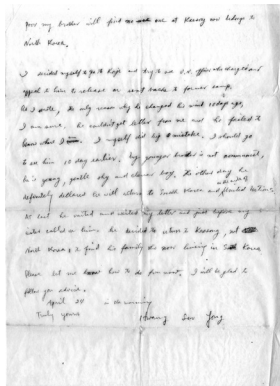 Poor my brother will find one at Kaesong now belongs to
North Korea.
I decided myself to go to Koje and try to see U.N. officer who charged and
appeal to him to release or send back to former camp.
As I wrote, the only reason why he changed his mind 10 days ago,
I am sure, he couldn't get letter from me and he failed to
know what I I myself did big mistake. I should go
to see him 10 day earlier. My younger brother is not communist,
he is young, gentle shy and clever boy. The other day he
definitely declared he will return to South Korea and
he said he waited and waited my letter and just before my
called on him he decided to return to Kaesong, not
North Korea, to find his family who now living in South Korea.
Please let me know how to do from next. I will be glad to
follow your advice.
April 24 in the morning
Truly yours
Hwang Soo Yong